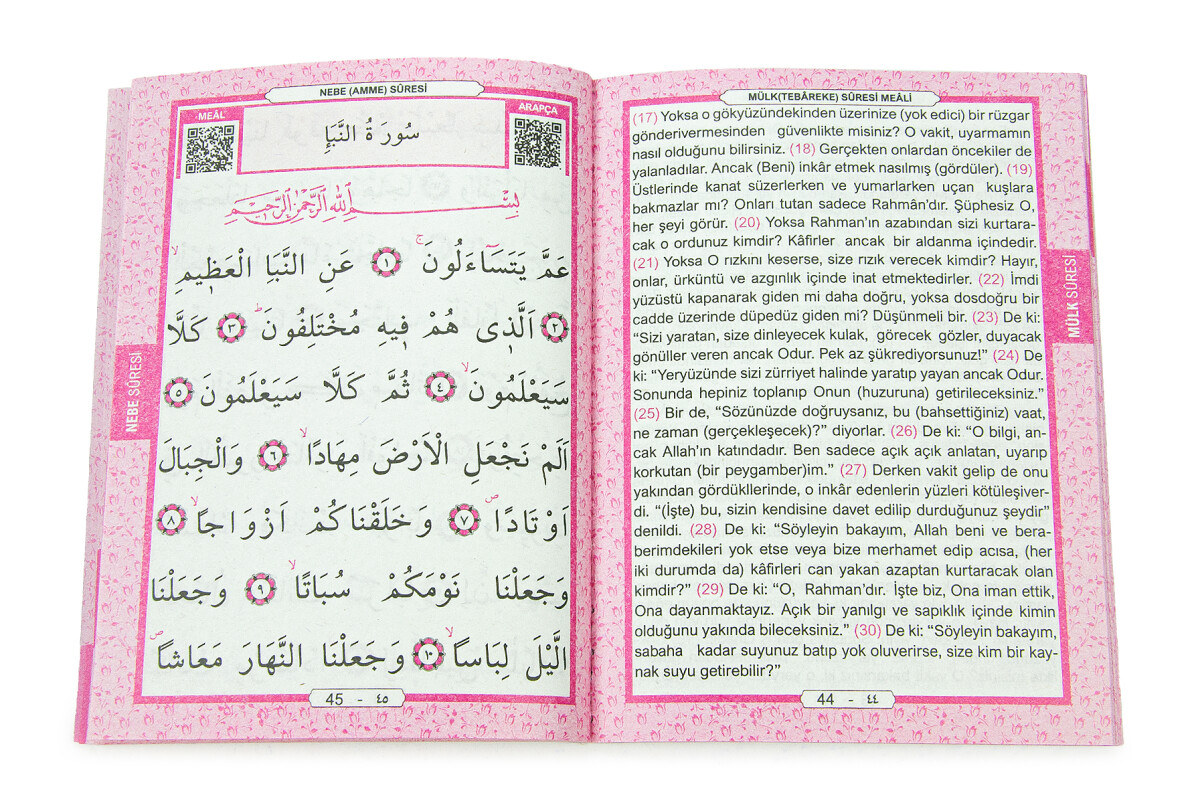 MÜLK(TEBÂREKE) SÛRESİ MEÂLİ
(17) Yoksa o gökyüzündekinden üzerinize (yok edici) bir rüzgar
gönderivermesinden güvenlikte misiniz? O vakit, uyarmamın
nasıl olduğunu bilirsiniz. (18) Gerçekten onlardan öncekiler de
yalanladılar. Ancak (Beni) inkâr etmek nasılmış (gördüler). (19)
Üstlerinde kanat süzerlerken ve yumarlarken uçan kuşlara
bakmazlar mı? Onları tutan sadece Rahmân'dır. Şüphesiz O,
her şeyi görür. (20) Yoksa Rahman'ın azabından sizi kurtara-
cak o ordunuz kimdir? Kâfirler ancak bir aldanma içindedir.
(21) Yoksa O rızkını keserse, size rızık verecek kimdir? Hayır,
onlar, ürküntü ve azgınlık içinde inat etmektedirler. (22) İmdi
yüzüstü kapanarak giden mi daha doğru, yoksa dosdoğru bir
cadde üzerinde düpedüz giden mi? Düşünmeli bir. (23) De ki:
“Sizi yaratan, size dinleyecek kulak, görecek gözler, duyacak
gönüller veren ancak Odur. Pek az şükrediyorsunuz!” (24) De
ki: “Yeryüzünde sizi zürriyet halinde yaratıp yayan ancak Odur.
Sonunda hepiniz toplanıp Onun (huzuruna) getirileceksiniz.”
(25) Bir de, “Sözünüzde doğruysanız, bu (bahsettiğiniz) vaat,
ne zaman (gerçekleşecek)?” diyorlar. (26) De ki: “O bilgi, an-
cak Allah'ın katındadır. Ben sadece açık açık anlatan, uyarıp
korkutan (bir peygamber)im.” (27) Derken vakit gelip de onu
yakından gördükllerinde, o inkâr edenlerin yüzleri kötüleşiver-
di. “(İşte) bu, sizin kendisine davet edilip durduğunuz şeydir”
denildi. (28) De ki: “Söyleyin bakayım, Allah beni ve bera-
berimdekileri yok etse veya bize merhamet edip acısa, (her
iki durumda da) kâfirleri can yakan azaptan kurtaracak olan
kimdir?” (29) De ki: “O, Rahman'dır. İşte biz, Ona iman ettik,
Ona dayanmaktayız. Açık bir yanılgı ve sapıklık içinde kimin
olduğunu yakında bileceksiniz.” (30) De ki: “Söyleyin bakayım,
sabaha kadar suyunuz batıp yok oluverirse, size kim bir kay-
nak suyu getirebilir?”
MÜLK SÛRESİ
44 - ٤٤
NEBE (AMME) SÛRESİ
MEÂL
ARAPÇA
سُورَةُ النَّبَأِ
بِسْمِ اللهِ الرَّحْمٰنِ الرَّحِيمِ
عَمَّ يَتَسَٓاءَلُونَۚ ﴿١﴾ عَنِ النَّبَاِ الْعَظ۪يمِۙ
﴿٢﴾ اَلَّذ۪ى هُمْ ف۪يهِ مُخْتَلِفُونَۜ ﴿٣﴾ كَلَّا
سَيَعْلَمُونَۙ ﴿٤﴾ ثُمَّ كَلَّا سَيَعْلَمُونَ ﴿٥﴾
اَلَمْ نَجْعَلِ الْاَرْضَ مِهَادًاۙ ﴿٦﴾ وَالْجِبَالَ
اَوْتَادًاۖ ﴿٧﴾ وَخَلَقْنَاكُمْ اَزْوَاجًاۙ ﴿٨﴾
وَجَعَلْنَا نَوْمَكُمْ سُبَاتًاۙ ﴿٩﴾ وَجَعَلْنَا
الَّيْلَ لِبَاسًاۙ ﴿١٠﴾ وَجَعَلْنَا النَّهَارَ مَعَاشًاۖ
NEBE SÛRESİ
45 - ٤٥